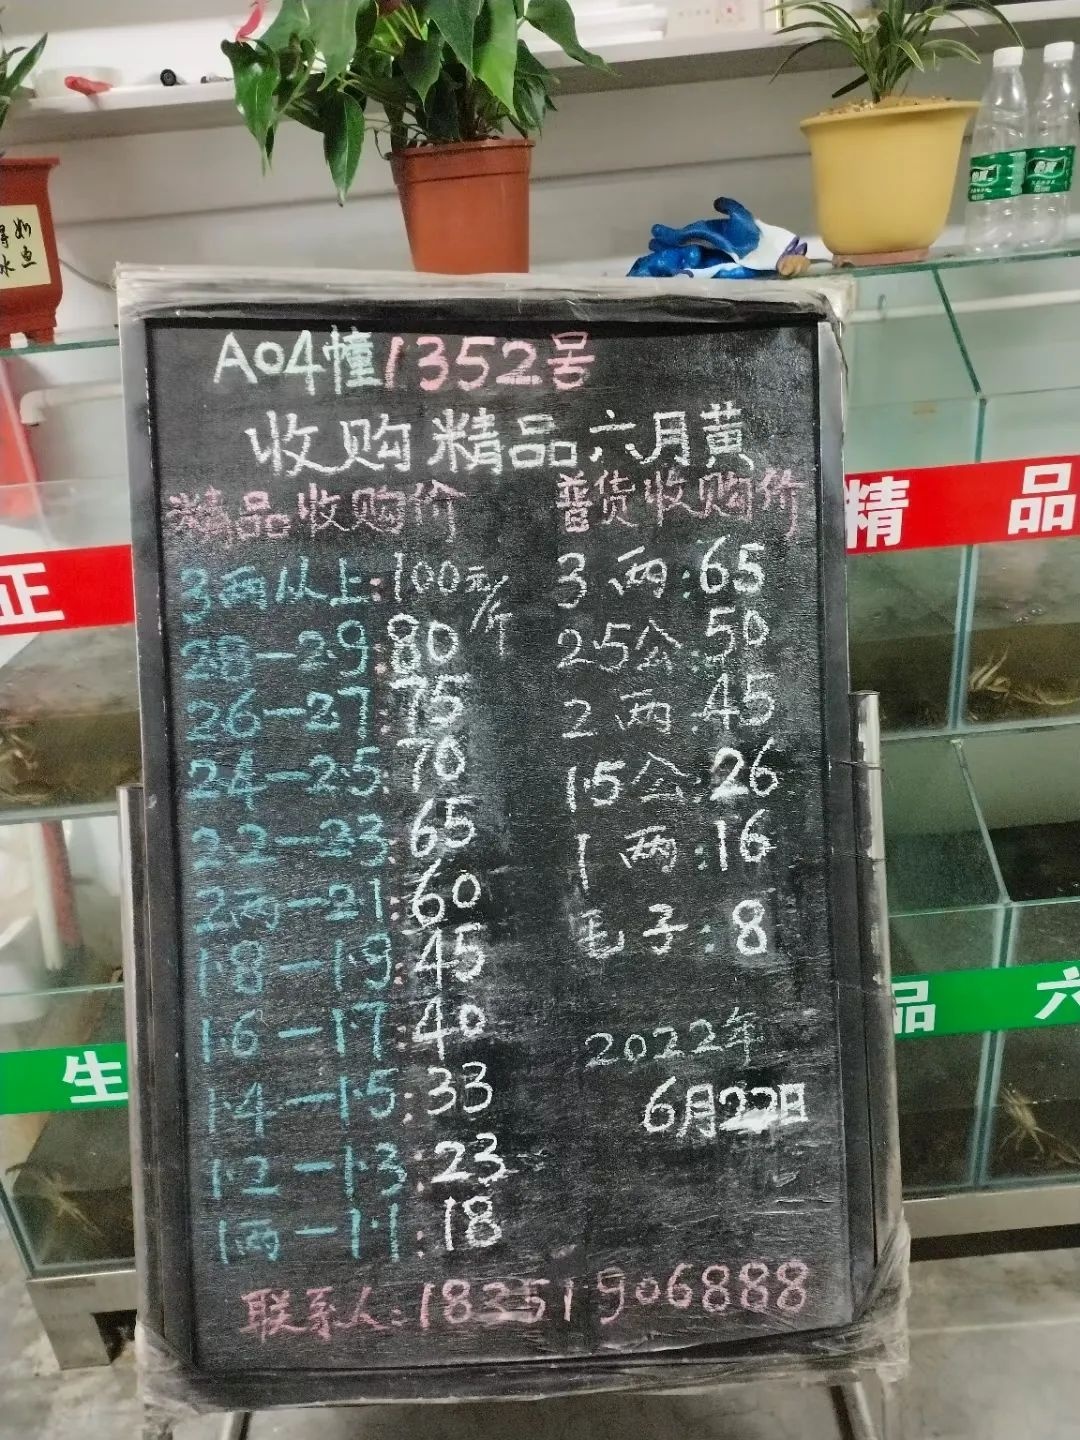 如鱼
得水
A04幢1352号
收购精品六月黄
精品收购价
3两从上:100元/斤
2.8—2.9:80
2.6—2.7:75
2.4—2.5:70
2.2—2.3:65
2两—2.1:60
1.8—1.9:45
1.6—1.7:40
1.4—1.5:33
1.2—1.3:23
1两—1.1:18
普货收购价
3两:65
2.5公:50
2两:45
1.5公:26
1两:16
毛子:8
2022年
6月22日
联系人:18351906888
正
精品
生
品六